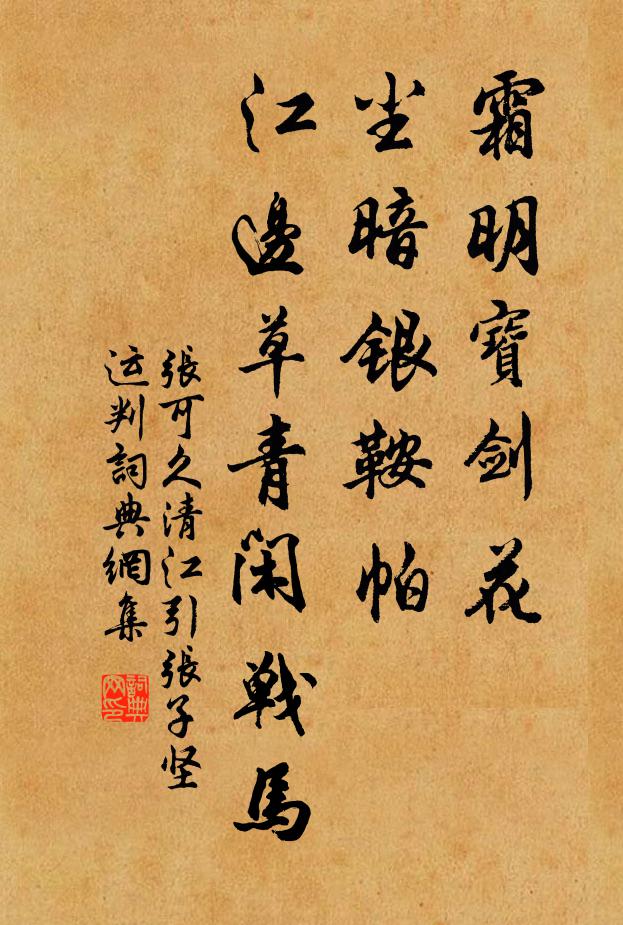 霜明寶剑花
尘暗银鞍帕
江邊草青閑戰馬
張可久清江引張子坚
运判詞典網集
詞典
网印